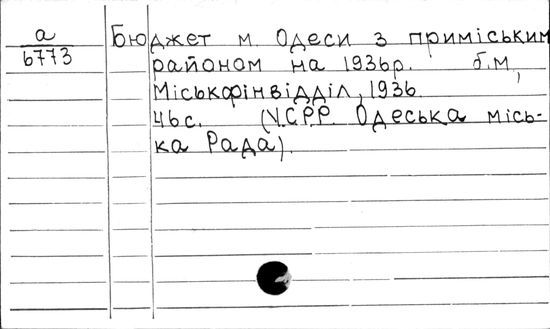 а
6773
Бюджет м. Одеси з приміським
районом на 1936р. б.м,
Міськфінвідділ, 1936.
46с. (У.С.Р.Р. Одеська місь-
ка Рада).